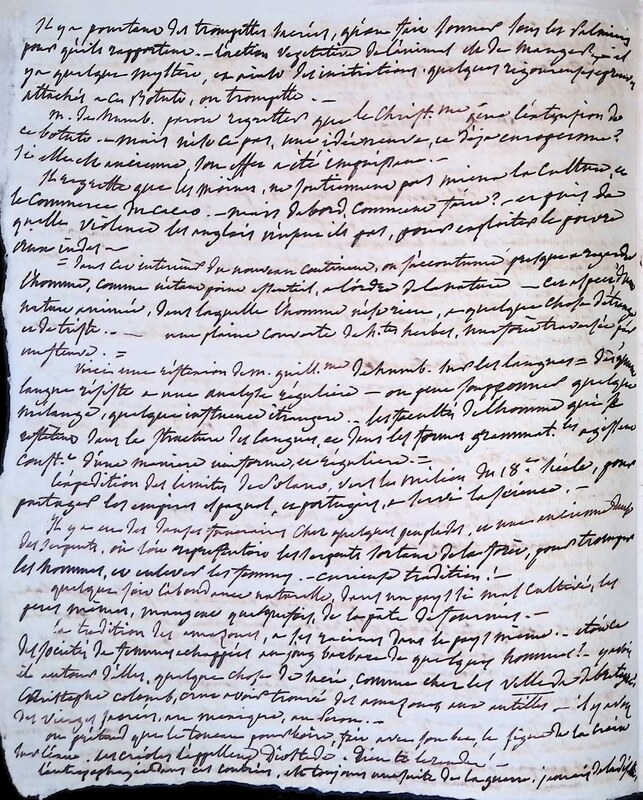 Il y a pourtant des trompettes sacrées, qu'on fait sonner sous les palmiers
pour qu'ils rapportent. - l'action végétative de l'animal est de manger - il
y a quelque mystère, des initiations. quelques rigoureuses
attachés à ce Botuto, ou trompette. -
m. de humb. paroit regretter que le Christ.me l'extension de
ce botuto. - mais n'est ce pas, une idée neuve, et déjà européenne?
si elle est ancienne, son effet a été
Il regrette que les moines, ne soutiennent pas mieux la culture, et
le commerce du cacao. - mais d'abord, comment faire? - et puis de
quelle violence les anglais n'useroient ils pas, pour exploiter le pauvre
= dans cet intérieur du nouveau continent, on s'accoutume presque à regarder
l'homme, comme n'étant point essentiel, à l'ordre de la nature - cet aspect d'une
nature animée, dans laquelle l'homme n'est rien, a quelque chose d'étrange
et de triste. - une plaine couverte de htes herbes, une forêt traversée par
un fleuve. =
Voici une réflexion de m. guill.me de humb. sur les langues =
langue résiste à une analyse régulière - on peut supposer quelque
mélange, quelque influence étrangère. les facultés de l'homme qui se
reflètent dans la structure des langues, et dans les formes grammat.les agissent
const.t d'une manière uniforme, et régulière. =
L'expédition des limites de Solano, vers le milieu du 18.me siècle, pour
partager les empires espagnol, et portugais, a servi la science. -
Il y a eu des danses chez quelques peuplades, et une ancienne danse
des serpents, où l'on représentoit les serpents sortant de la forêt, pour tromper
les hommes, et enlever les femmes. - curieuse tradition! -
quelque soit l'abondance naturelle, dans un pays si mal cultivé, les
pères mêmes, mangent quelquefois, de la pâte de fourmis. -
la tradition des amazones, a ses racines dans le pays même. - étoit ce
des sociétés de femmes échappées au joug barbare de quelques hommes?
il autour d'elles, quelque chose de sacré, comme chez les
Christophe colomb, crut avoir trouvé des amazones aux antilles - il y avoit
des vierges sacrées, au mexique, au Pérou. -
on prétend que le toucan pour boire, fait avec son bec, le signe de la croix
sur l'eau. les créoles l'appellent Diostedé. Dieu te le rende! -
l'antropophagie dans ces contrées, est toujours une suite de la guerre, jamais de la